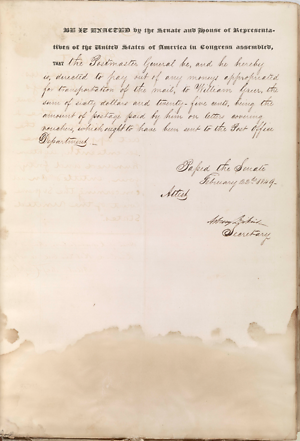 BE IT ENACTED by the Senate and House of Representa-
tives of the United States of America in Congress assembled,
THAT the Postmaster General be, and he hereby
is, directed to pay out of any moneys appropriated
for transportation of the mail, to William Greer, the
sum of sixty dollars and twenty-four cents, being the
amount of postage paid by him on letters covering
vouchers, which ought to have been sent to the Post Office
Department
Passed the Senate
February 22d 1849.
Attest
Secretary